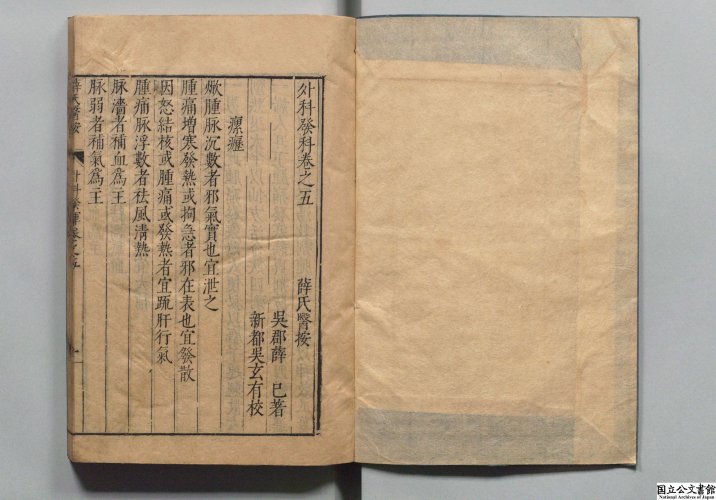 外科發科卷之五　薛氏醫按
吳郡薛　已著
新都吳玄有校
瘰癧
焮腫脉沉數者邪氣實也宜泄之
腫痛增寒發熱或拘急者邪在表也宜發散
因怒結核或腫痛或發熱者宜疏肝行氣
腫痛脉浮數者祛風清熱
脉濇者補血爲主
脉弱者補氣爲主
薛氏醫按　外科發揮卷之五　一
国立公文書館
National Archives of Japan